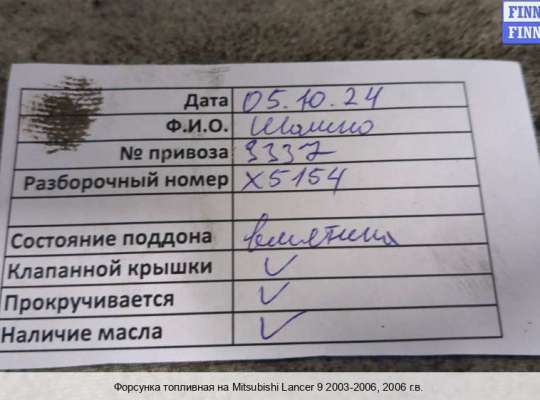 FINN
FINN
Дата 05.10.24
Ф.И.О.
№ привоза 9337
Разборочный номер X5154
Состояние поддона вмятина
Клапанной крышки ✓
Прокручивается ✓
Наличие масла ✓
Форсунка топливная на Mitsubishi Lancer 9 2003-2006, 2006 г.в.